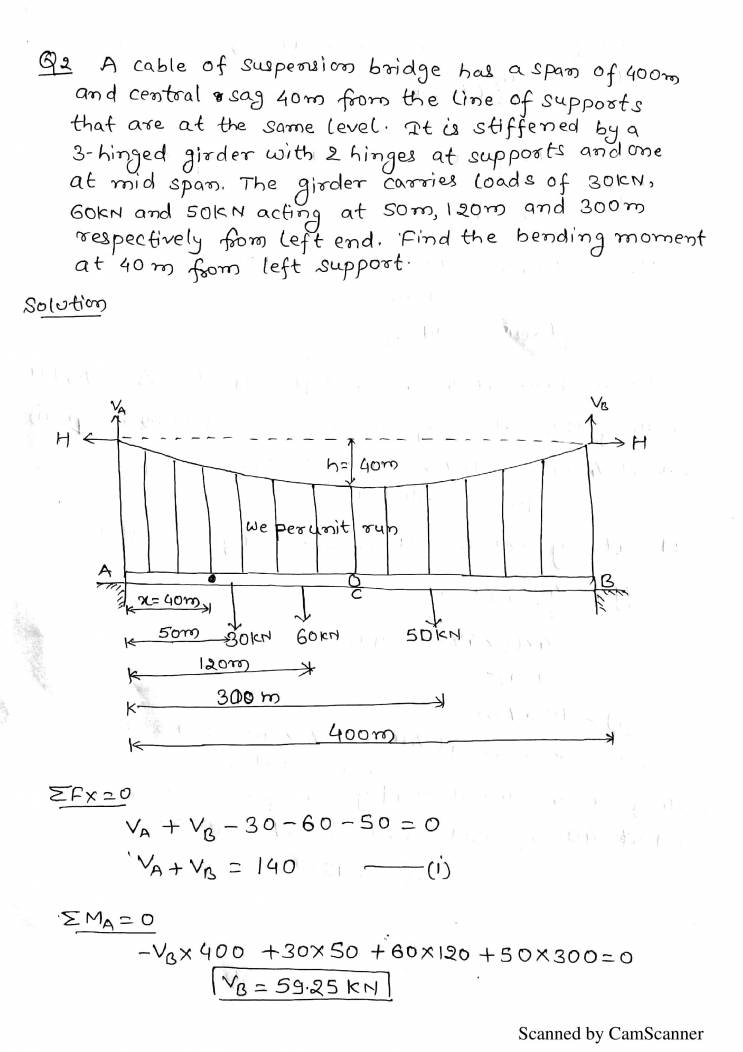 Q2 A cable of suspension bridge has a span of 400m
and central sag 40m from the line of supports
that are at the same level. It is stiffened by a
3-hinged girder with 2 hinges at supports and one
at mid span. The girder carries loads of 30KN,
60KN and 50KN acting at 50m, 120m and 300m
respectively from left end. Find the bending moment
at 40m from left support.
Solution
VA VB
H H
h= 40m
we per unit run
A B
C
x=40m
50m 30KN 60KN 50KN
120m
300m
400m
ΣFx=0
VA + VB - 30 - 60 - 50 = 0
VA + VB = 140 (i)
ΣMA = 0
-VB×400 +30×50 +60×120 +50×300=0
VB = 59.25 KN
Scanned by CamScanner